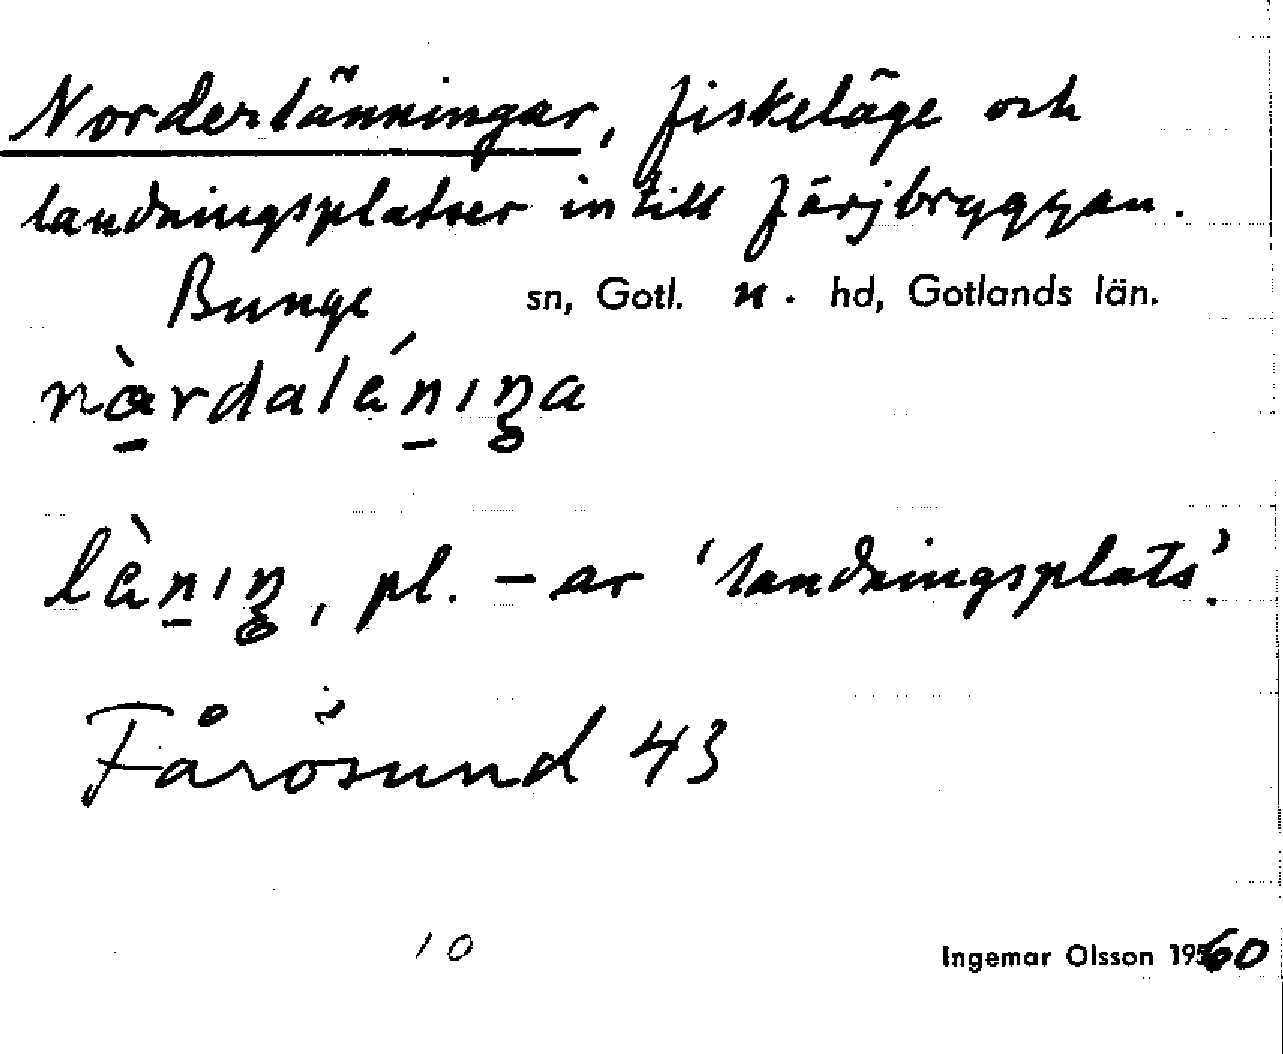 Norderlänningar, fiskeläge och
landningsplatser intill färjbryggan.
Bunge sn, Gotl. n. hd, Gotlands län.
nàrdaléniŋa
lèniŋ, pl. -ar 'landningsplats'.
Fårösund 43
10
Ingemar Olsson 1960